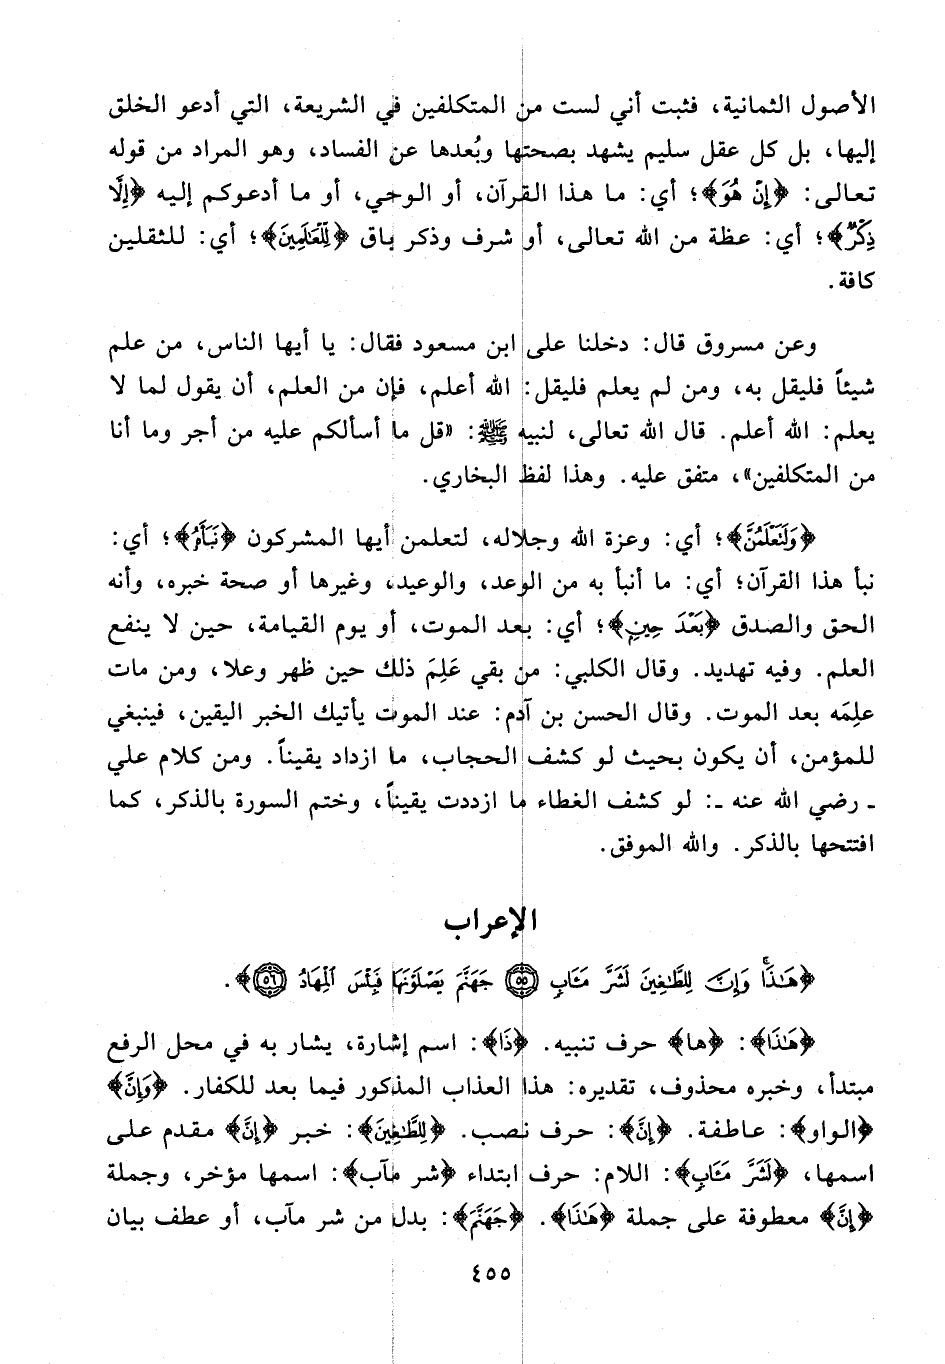 الأصول الثمانية، فثبت أني لست من المتكلفين في الشريعة، التي أدعو الخلق
إليها، بل كل عقل سليم يشهد بصحتها وبُعدها عن الفساد، وهو المراد من قوله
تعالى: ﴿إِنْ هُوَ﴾؛ أي: ما هذا القرآن، أو الوحي، أو ما أدعوكم إليه ﴿إِلَّا
ذِكْرٌ﴾؛ أي: عظة من الله تعالى، أو شرف وذكر باق ﴿لِّلْعَٰلَمِينَ﴾؛ أي: للثقلين
كافة.
وعن مسروق قال: دخلنا على ابن مسعود فقال: يا أيها الناس، من علم
شيئاً فليقل به، ومن لم يعلم فليقل: الله أعلم، فإن من العلم، أن يقول لما لا
يعلم: الله أعلم. قال الله تعالى، لنبيه ﷺ: «قل ما أسألكم عليه من أجر وما أنا
من المتكلفين»، متفق عليه. وهذا لفظ البخاري.
﴿وَلَتَعْلَمُنَّ﴾؛ أي: وعزة الله وجلاله، لتعلمن أيها المشركون ﴿نَبَأَهُ﴾؛ أي:
نبأ هذا القرآن؛ أي: ما أنبأ به من الوعد، والوعيد، وغيرها أو صحة خبره، وأنه
الحق والصدق ﴿بَعْدَ حِينٍ﴾؛ أي: بعد الموت، أو يوم القيامة، حين لا ينفع
العلم. وفيه تهديد. وقال الكلبي: من بقي عَلِمَ ذلك حين ظهر وعلا، ومن مات
علِمَه بعد الموت. وقال الحسن بن آدم: عند الموت يأتيك الخبر اليقين، فينبغي
للمؤمن، أن يكون بحيث لو كشف الحجاب، ما ازداد يقيناً. ومن كلام علي
ـ رضي الله عنه ـ: لو كشف الغطاء ما ازددت يقيناً، وختم السورة بالذكر، كما
افتتحها بالذكر. والله الموفق.
الإعراب
﴿هَٰذَاۚ وَإِنَّ لِلطَّٰغِينَ لَشَرَّ مَـَٔابٍ ٥٥ جَهَنَّمَ يَصْلَوْنَهَا فَبِئْسَ ٱلْمِهَادُ ٥٦﴾.
﴿هَٰذَا﴾: ﴿ها﴾ حرف تنبيه. ﴿ذَا﴾: اسم إشارة، يشار به في محل الرفع
مبتدأ، وخبره محذوف، تقديره: هذا العذاب المذكور فيما بعد للكفار. ﴿وَإِنَّ﴾
﴿الواو﴾: عاطفة. ﴿إِنَّ﴾: حرف نصب. ﴿لِلطَّٰغِينَ﴾: خبر ﴿إِنَّ﴾ مقدم على
اسمها، ﴿لَشَرَّ مَـَٔابٍ﴾: اللام: حرف ابتداء ﴿شر مآب﴾: اسمها مؤخر، وجملة
﴿إِنَّ﴾ معطوفة على جملة ﴿هَٰذَا﴾. ﴿جَهَنَّمَ﴾: بدل من شر مآب، أو عطف بيان
٤٥٥